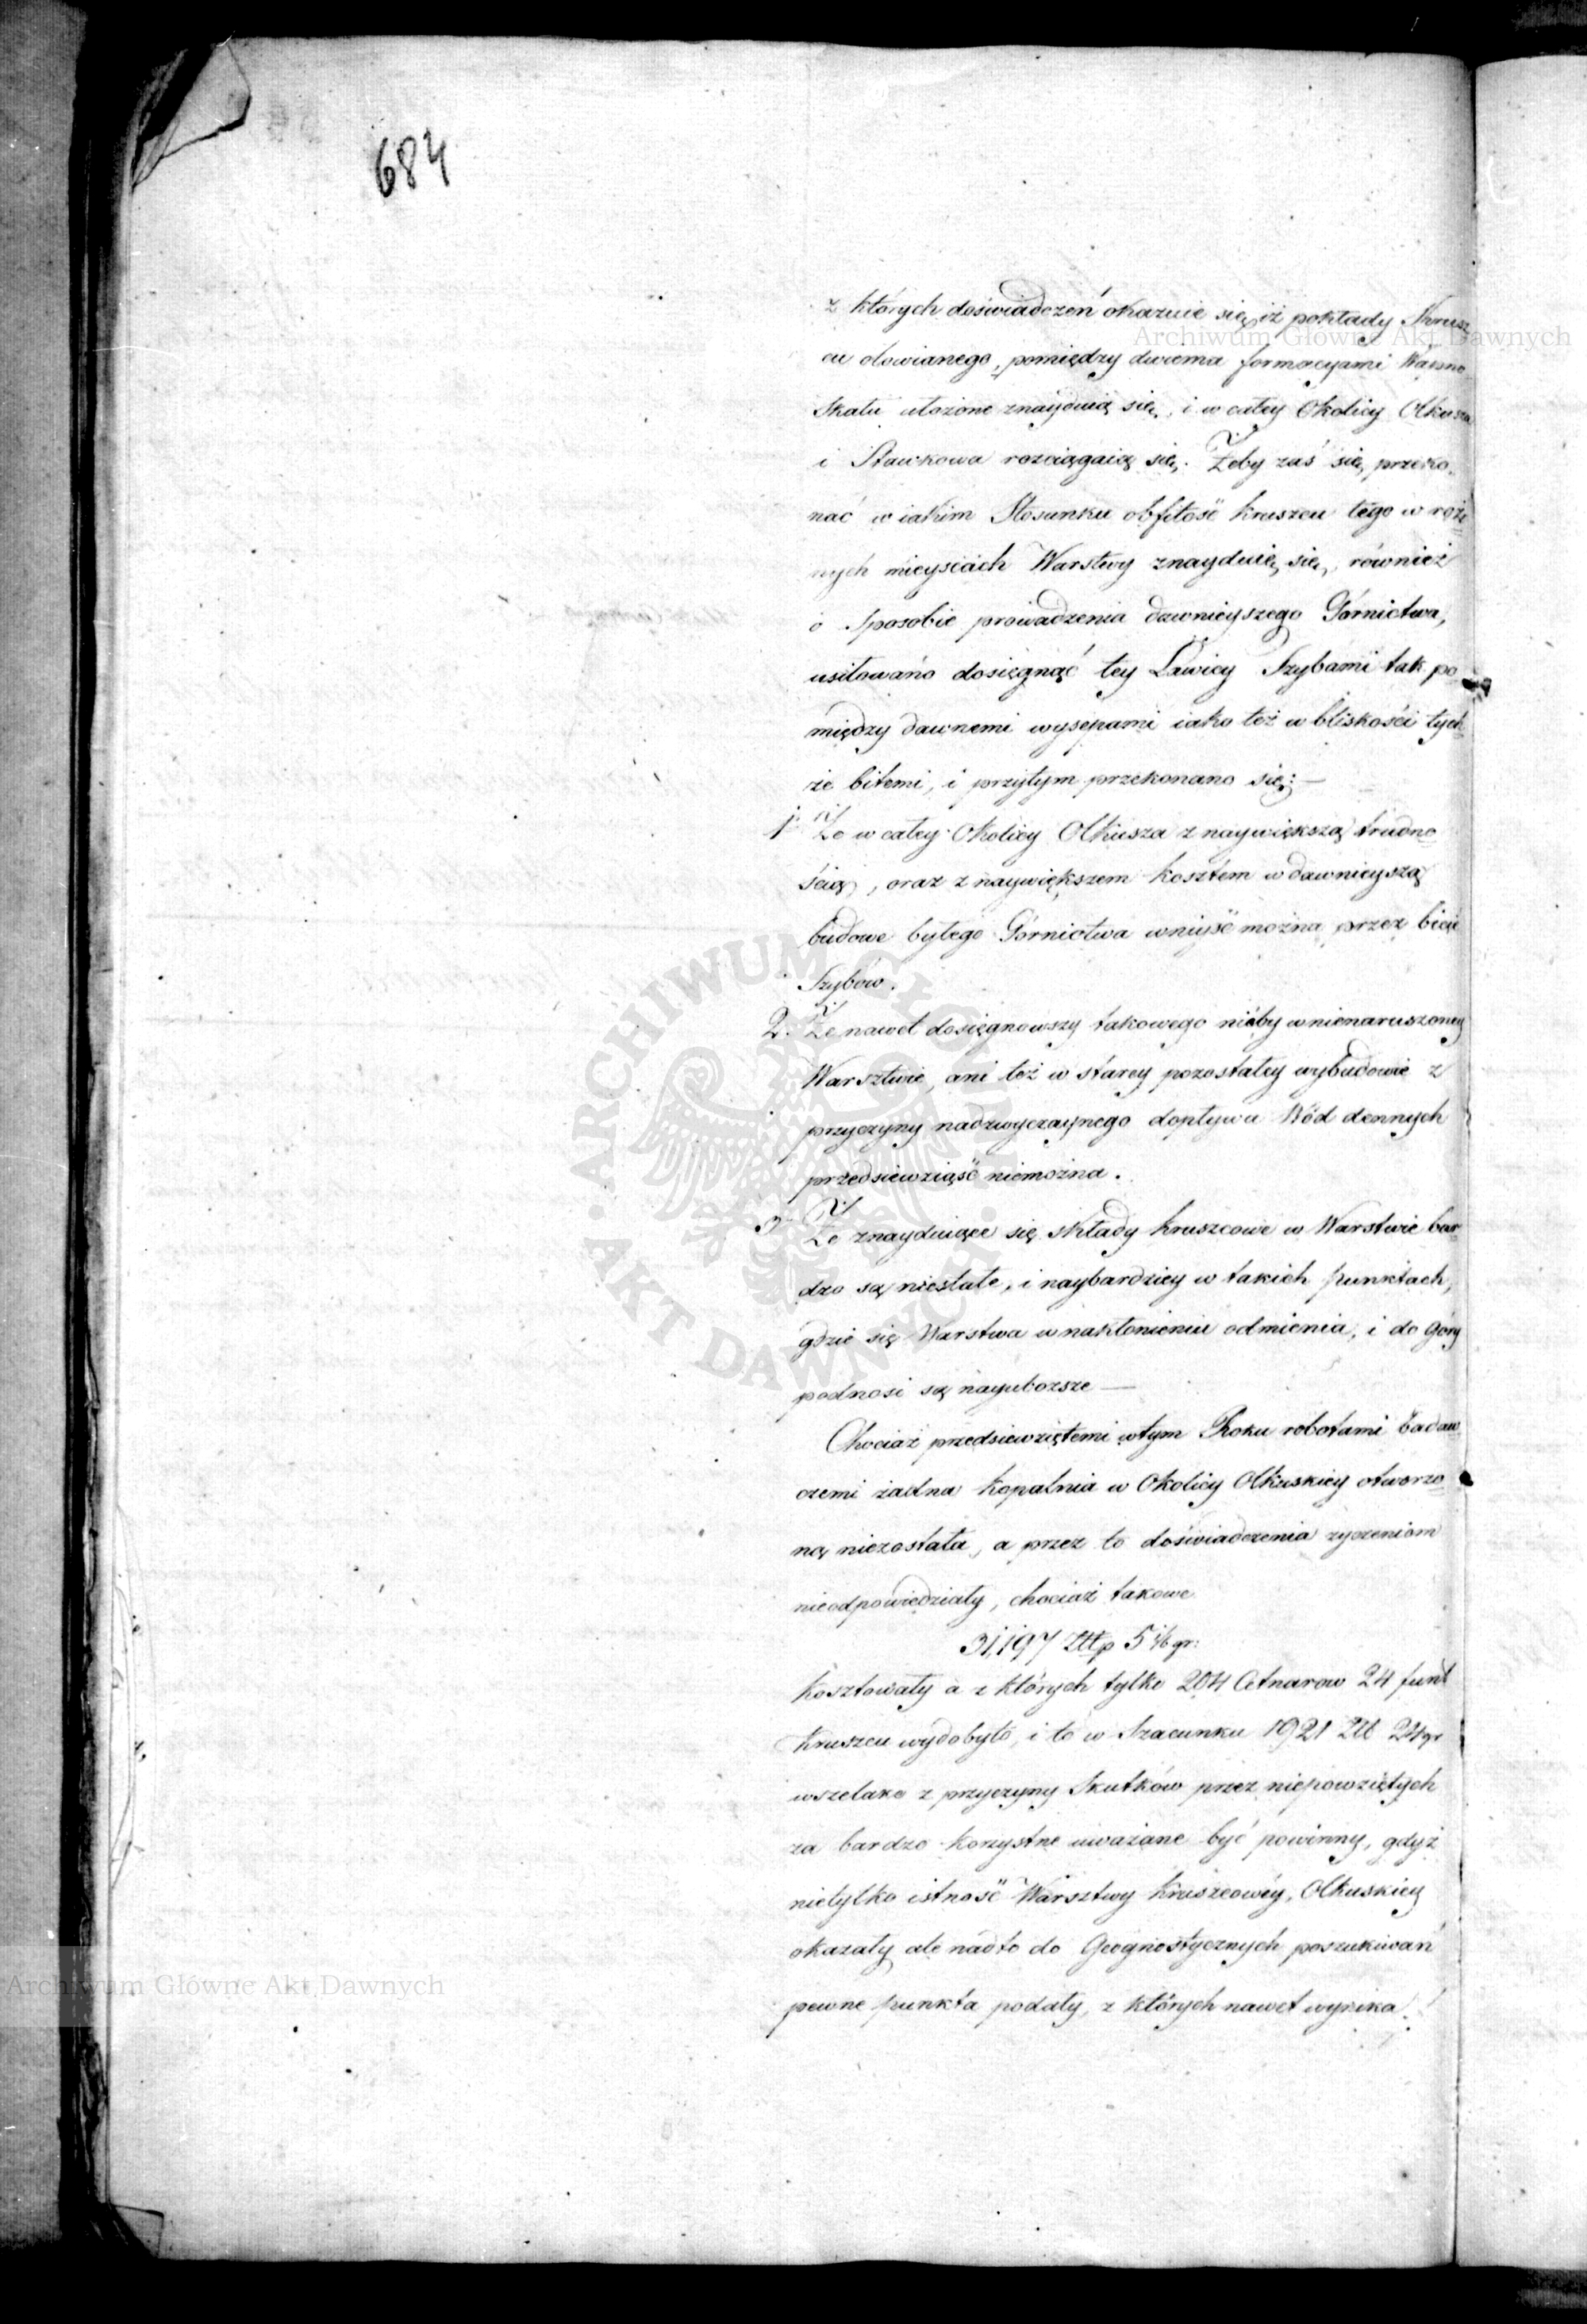 684
z których doświadczeń okazuie się iż pokłady Krusz
cu ołowianego, pomiędzy dwiema formacyami Wapno
Skału ułożone znayduią się, i w całey Okolicy Olkusza
i Sławkowa rozciągaią się. Żeby zaś się przeko
nać w iakim Stosunku obfitość kruszcu tego w róż
nych mieyscach Warstwy znayduie się, również
o Sposobie prowadzenia dawnieyszego Górnictwa,
usiłowano dosięgnąć tey Ławicy Szybami tak po
między dawnemi wysepami iako też w bliskości tych
że bitemi, i przytym przekonano się: —
1. Że w całey Okolicy Olkusza z naywiększą trudno
ścią, oraz z naywiększem kosztem w dawnieyszą
budowe byłego Górnictwa wniyść można przez bicie
Szybów.
2. Że nawet dosięgnowszy takowego nieby w nienaruszoney
Warsztwie, ani też w starey pozostałey wybudowie z
przyczyny nadzwyczaynego dopływu Wód dennych
przedsiewziąść niemożna.
3. Że znayduiące się składy kruszcowe w Warstwie bar
dzo są niestałe, i naybardziey w takich punktach,
gdzie się Warstwa w nakłonieniu odmienia, i do góry
podnosi są nayuboższe —
Chociaż przedsiewziętemi wtym Roku robotami badaw
czemi żadna kopalnia w Okolicy Olkuskiey otworzo
ną niezostała, a przez to doświadczenia życzeniom
nieodpowiedziały, chociaż takowe
31,197 Złtp 5 1/6 gr:
kosztowały a z których tylko 204 Cetnarow 24 funt
kruszcu wydobyto, i to w Szacunku 1921 Złt 24 gr
wszelako z przyczyny Skutków przez nie powziętych
za bardzo korzystne uważane być powinny, gdyż
nietylko istność Warsztwy kruszcowéy, Olkuskiey
okazały ale nadto do Geognostycznych poszukiwań
pewne punkta podały, z których nawet wynika
Archiwum Główne Akt Dawnych
Archiwum Główne Akt Dawnych
ARCHIWUM GŁÓWNE · AKT DAWNYCH ·